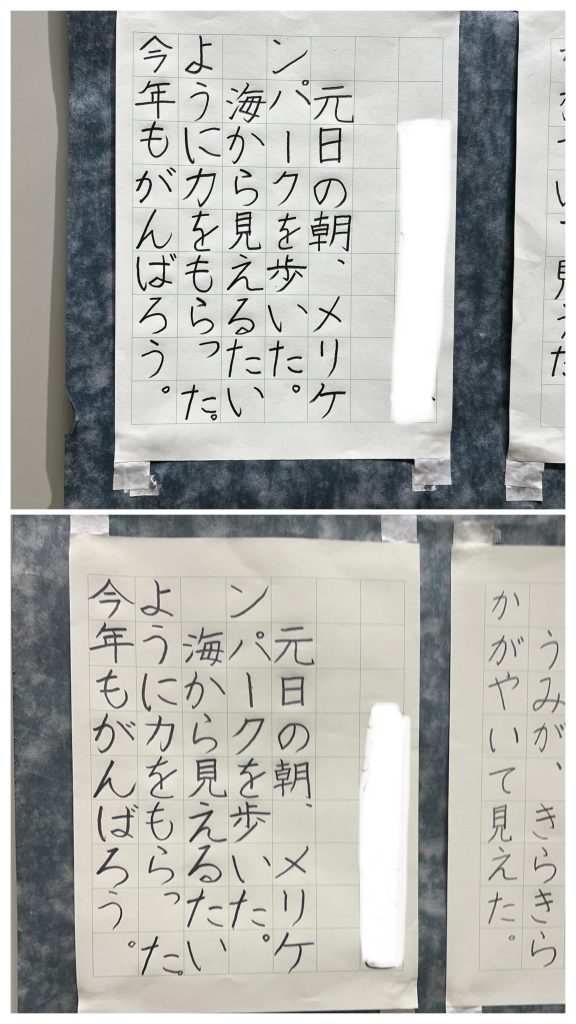 元日の朝、メリケ
ンパークを歩いた。
海から見えるたい
ように力をもらった。
今年もがんばろう。
うみが、きらきら
かがやいて見えた。
元日の朝、メリケ
ンパークを歩いた。
海から見えるたい
ように力をもらった。
今年もがんばろう。